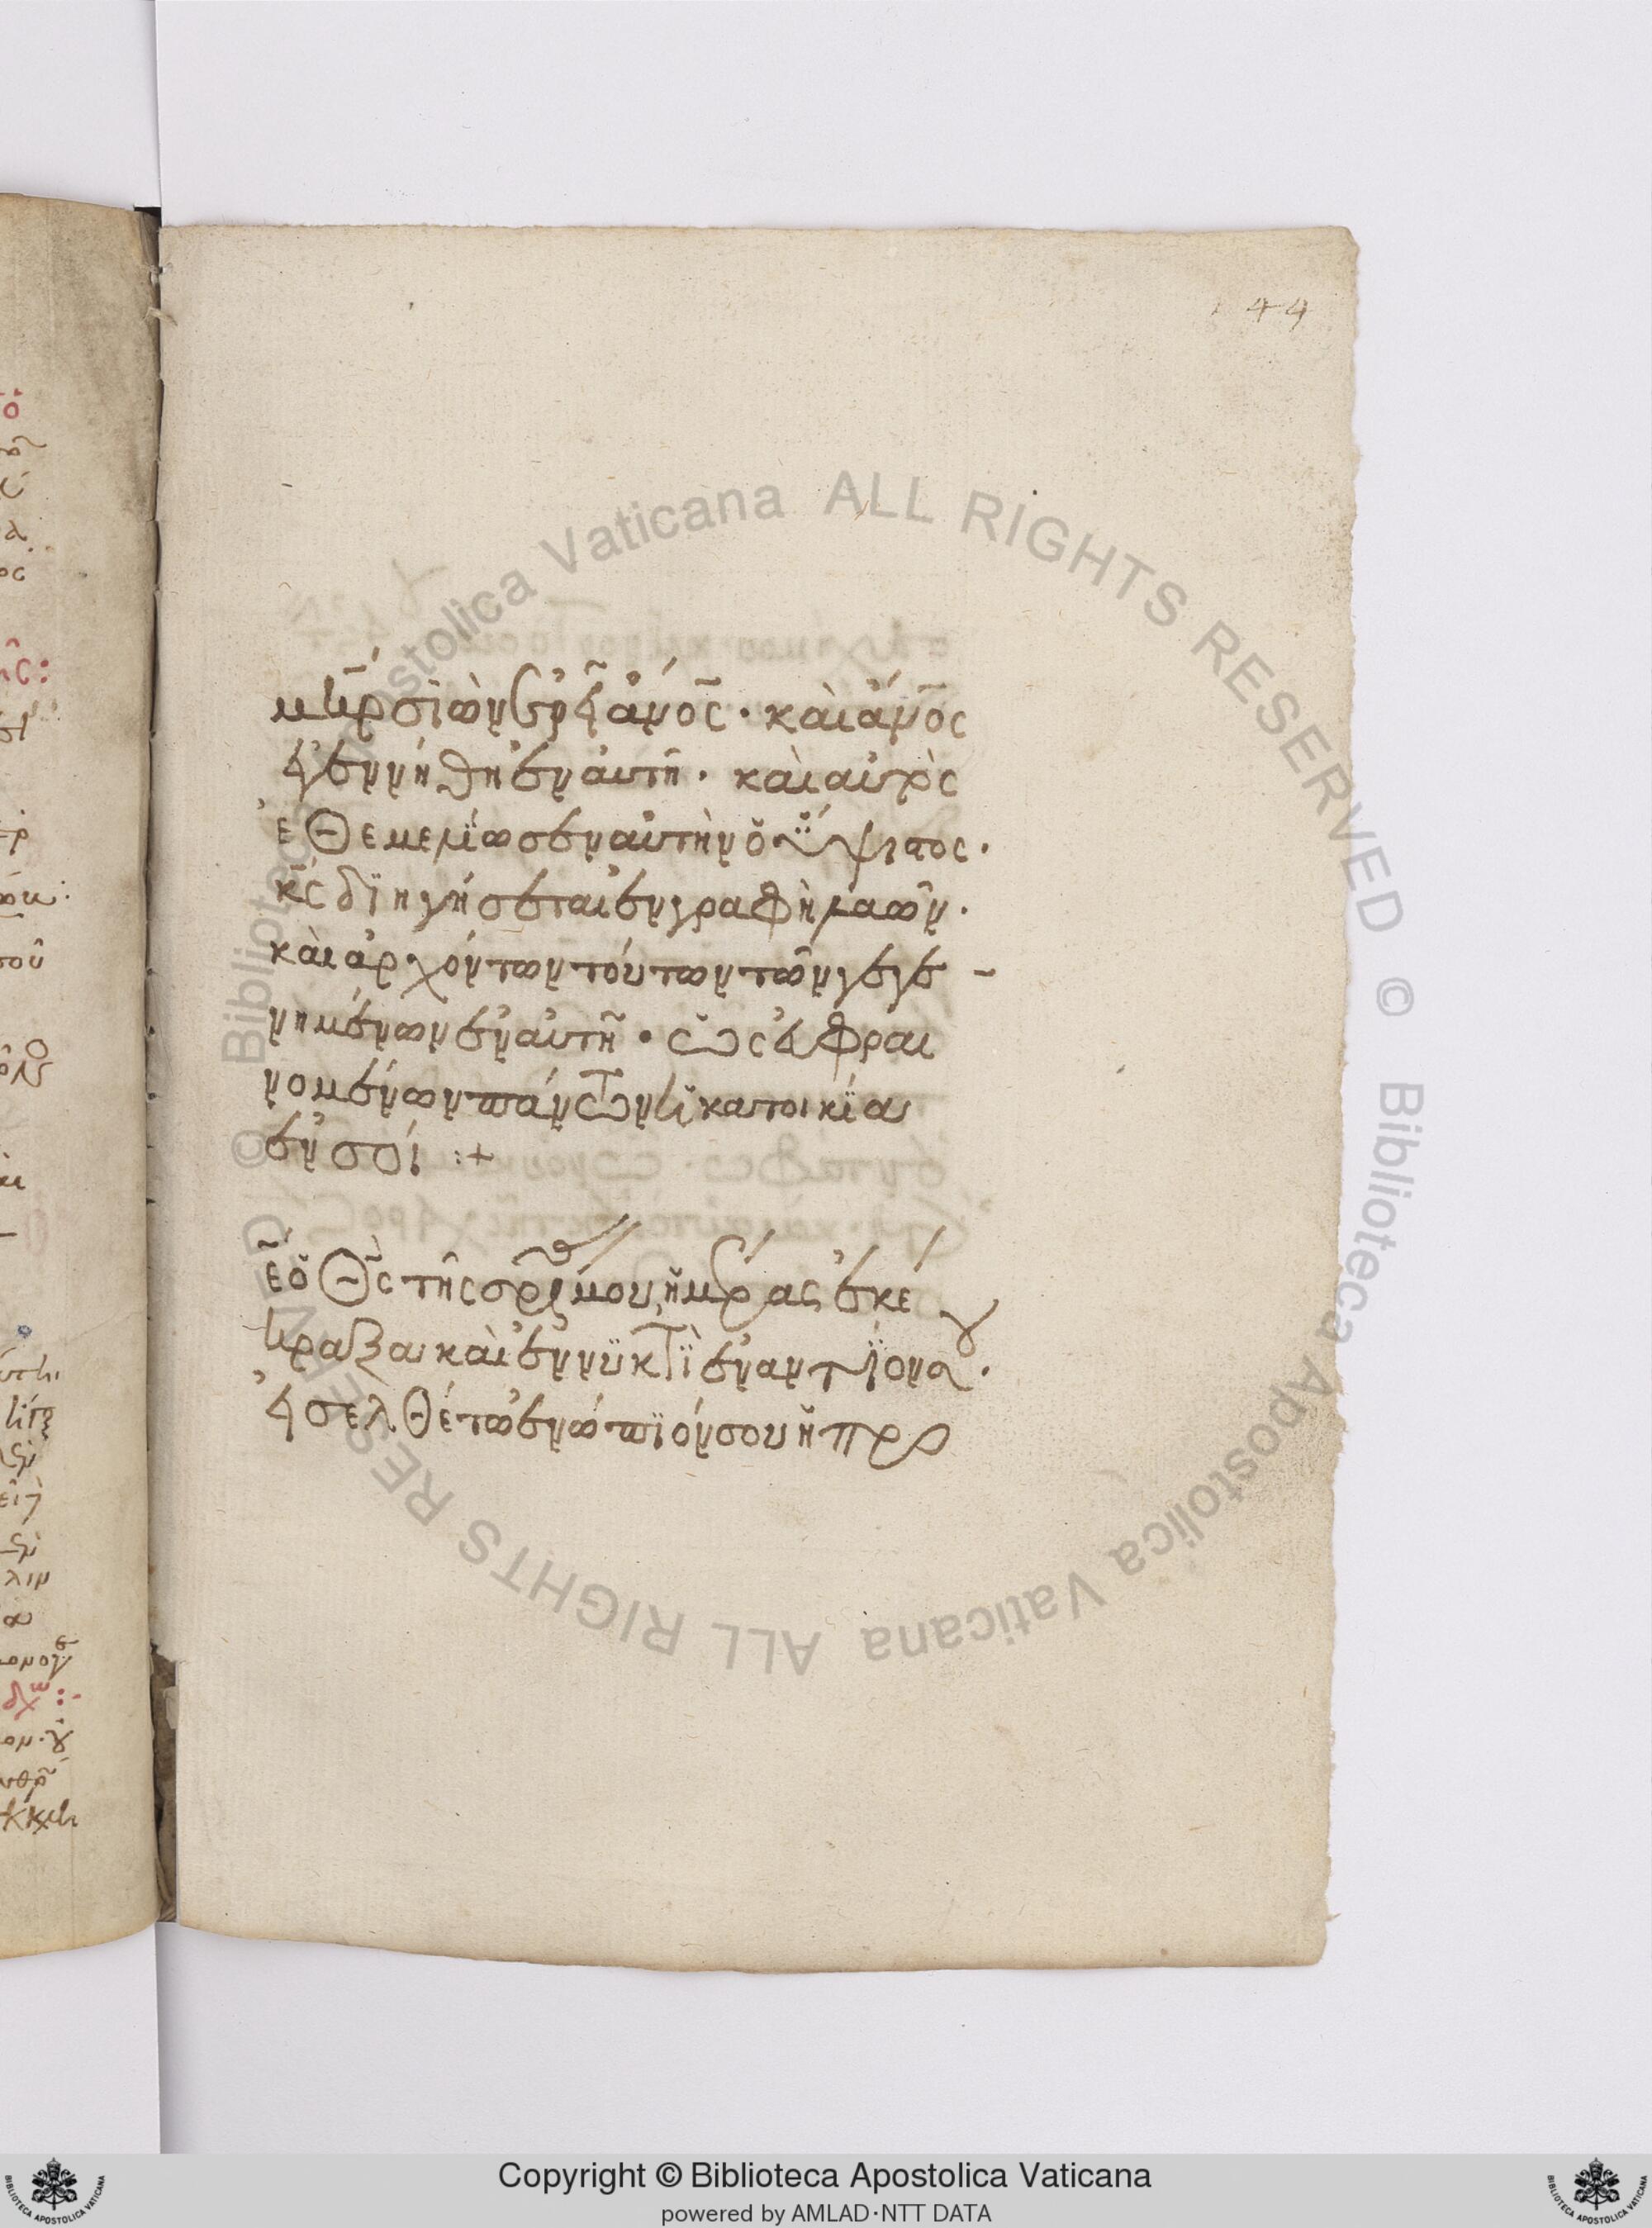 144
μη̅ρ σιὼν ἐρεῖ ἄν̅ος· καὶ ἄν̅ος
ἐγεννήθη ἐν αὐτῆ· καὶ αὐτὸς
ἐθεμελίωσεν αὐτὴν ὁ ὕψιστος·
κ̅ς διηγήσεται ἐν γραφῆ λαῶν·
καὶ ἀρχόντων τούτων τῶν γεγε-
νημένων ἐν αὐτῆ· ὡς εὐφραι
νομένων πάντων ἡ κατοικία
ἐν σοί :+
κ̅ε ὁ θ̅ς τῆς σρ̅ί μου ἡμέρας ἐκέ
κραξα καὶ ἐν νυκτὶ ἐναντίον σου·
εἰσελθέτω ἐνώπιόν σου ἡ προ
Copyright © Biblioteca Apostolica Vaticana
powered by AMLAD·NTT DATA
© Biblioteca Apostolica Vaticana ALL RIGHTS RESERVED
© Biblioteca Apostolica Vaticana ALL RIGHTS RESERVED